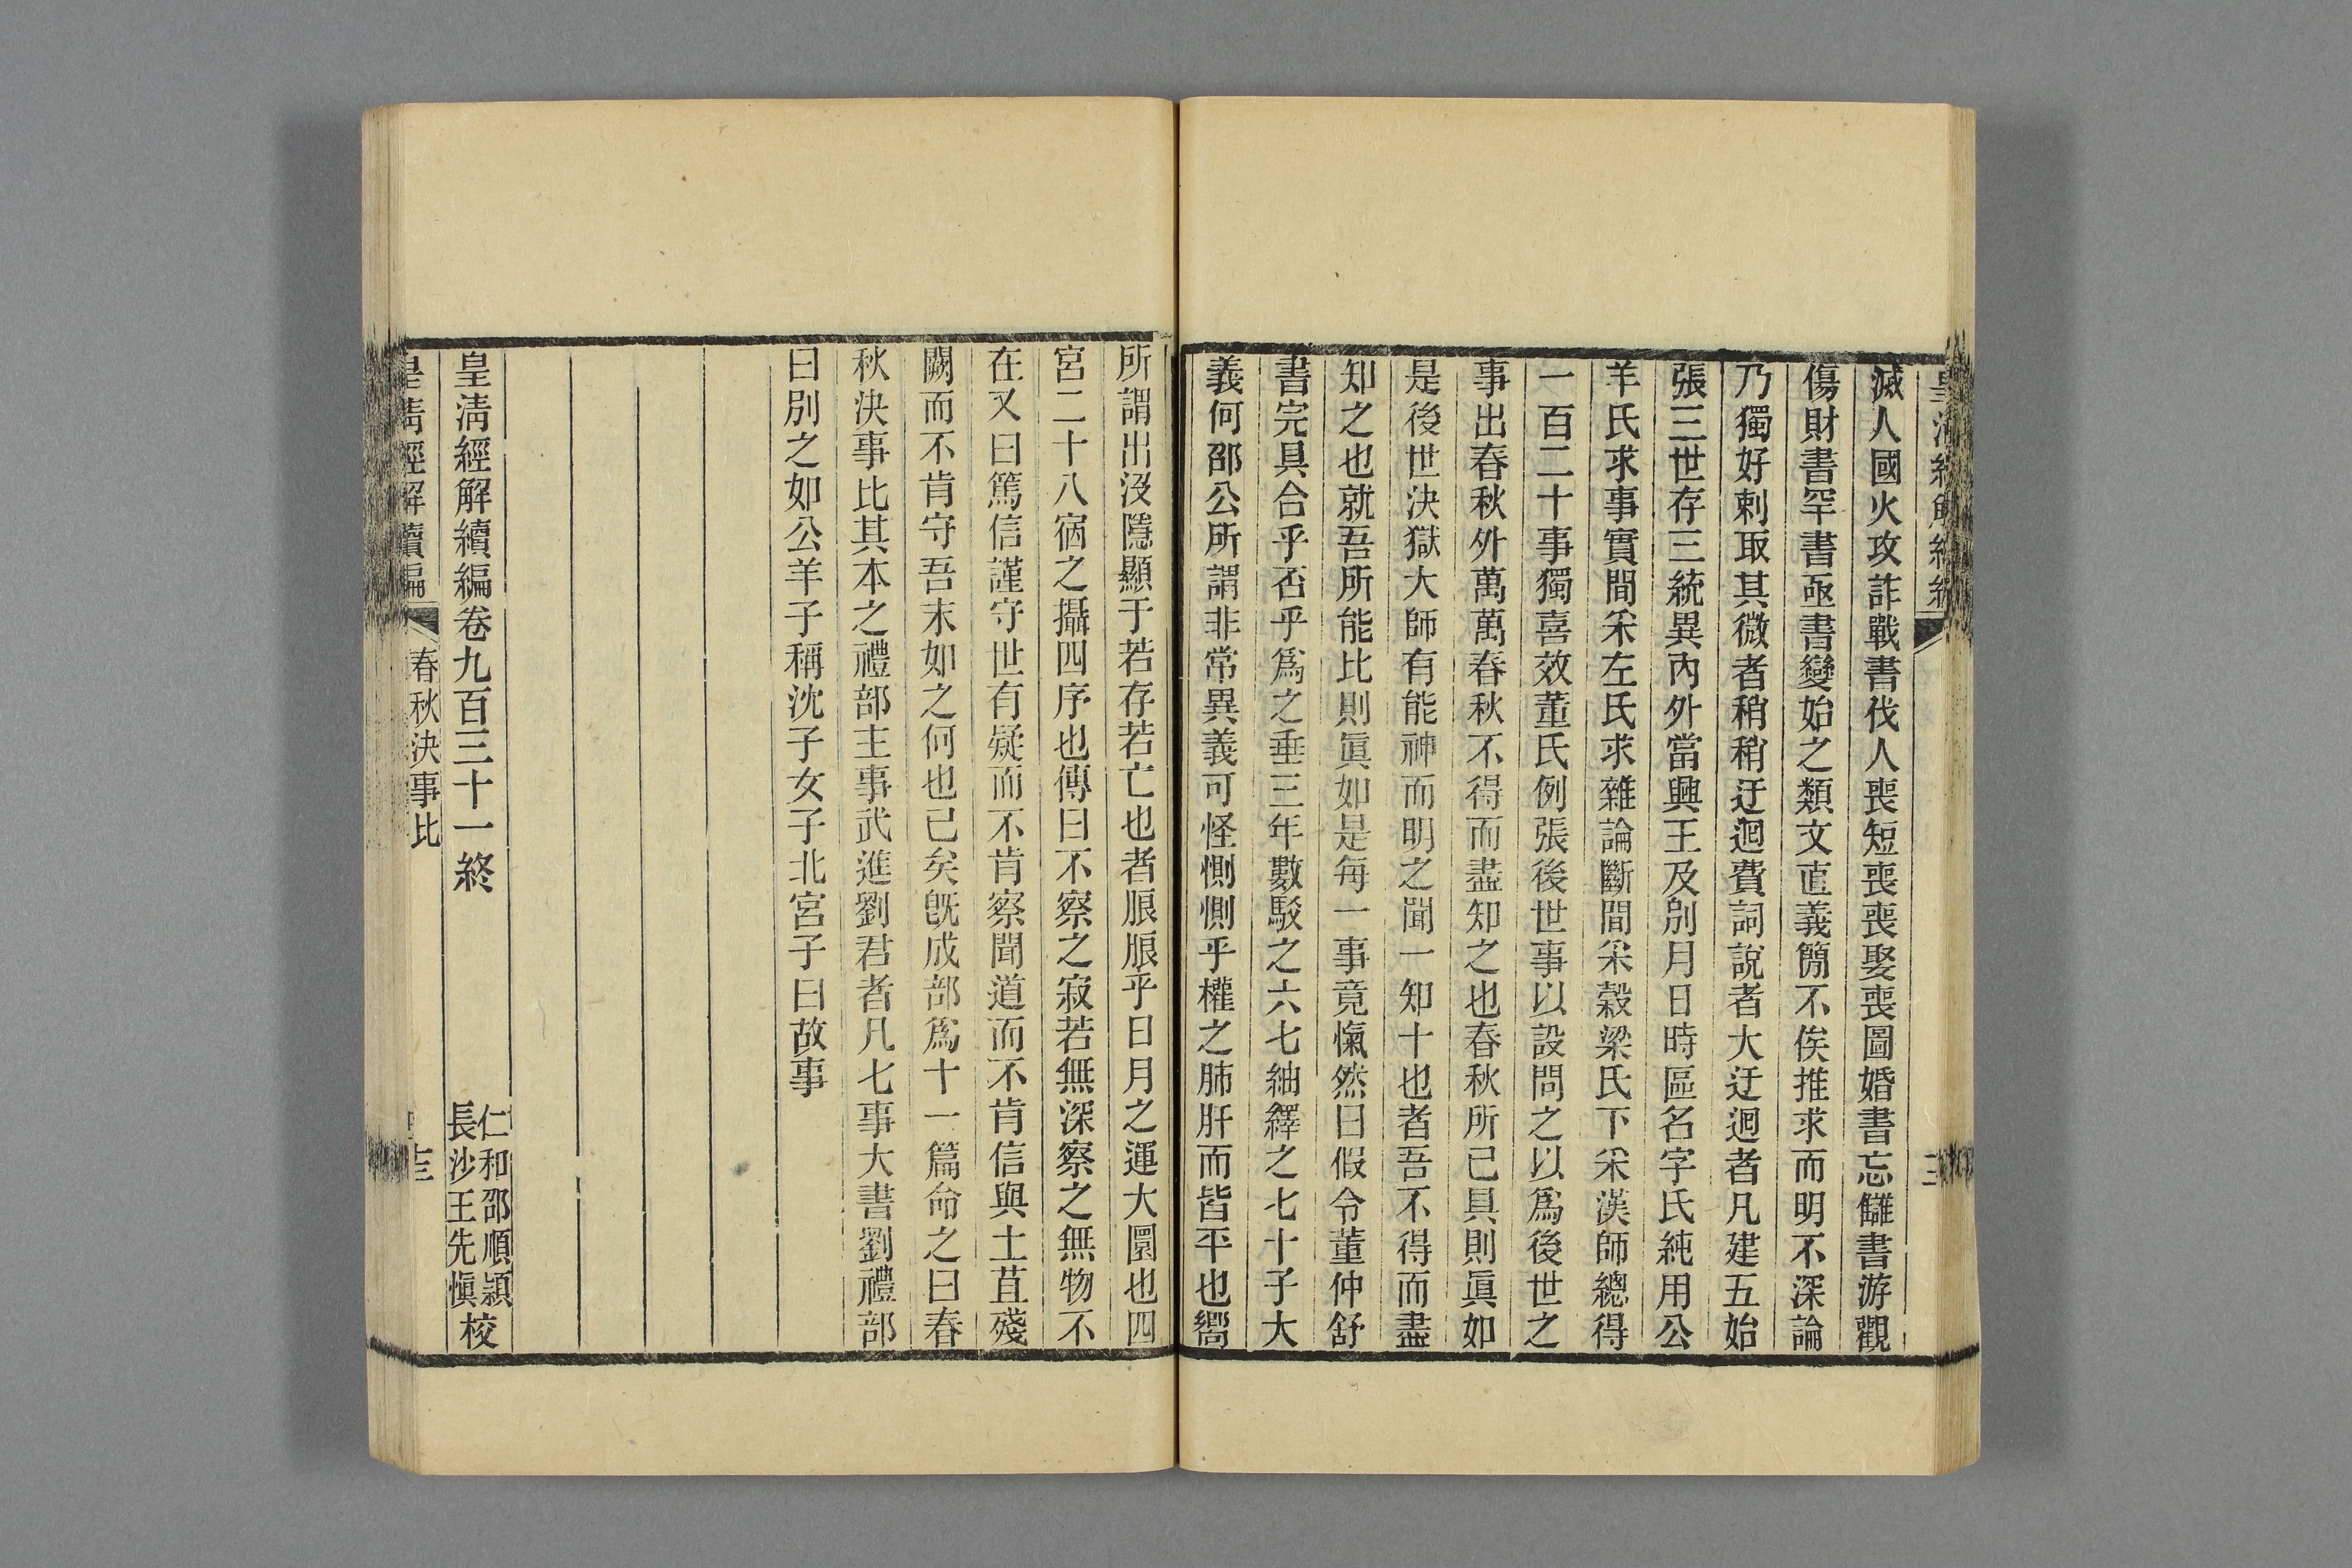 滅人國火攻詐戰書伐人喪短喪喪娶喪圖婚書忘讎書游觀
傷財書罕書亟書變始之類文直義簡不俟推求而明不深論
乃獨好刺取其微者稍稍迂迴費詞說者大迂迴者凡建五始
張三世存三統異內外當興王及別月日時區名字氏純用公
羊氏求事實間采左氏求雜論斷間采榖梁氏下采漢師總得
一百二十事獨喜效董氏例張後世事以設問之以爲後世之
事出春秋外萬萬春秋不得而盡知之也春秋所已具則眞如
是後世決獄大師有能神而明之聞一知十也者吾不得而盡
知之也就吾所能比則眞如是每一事竟愾然曰假令董仲舒
書完具合乎否乎爲之垂三年數駁之六七紬繹之七十子大
義何邵公所謂非常異義可怪惻惻乎權之肺肝而皆平也嚮
所謂出沒隱顯于若存若亡也者脤脤乎日月之運大圜也四
宮二十八宿之攝四序也傳曰不察之寂若無深察之無物不
在又曰篤信謹守世有疑而不肯察聞道而不肯信與土苴殘
闕而不肯守吾末如之何也已矣旣成部爲十一篇命之曰春
秋決事比其本之禮部主事武進劉君者凡七事大書劉禮部
曰別之如公羊子稱沈子女子北宮子曰故事
皇淸經解續編卷九百三十一終
仁和邵順潁
長沙王先愼校
皇淸經解續編 春秋決事比